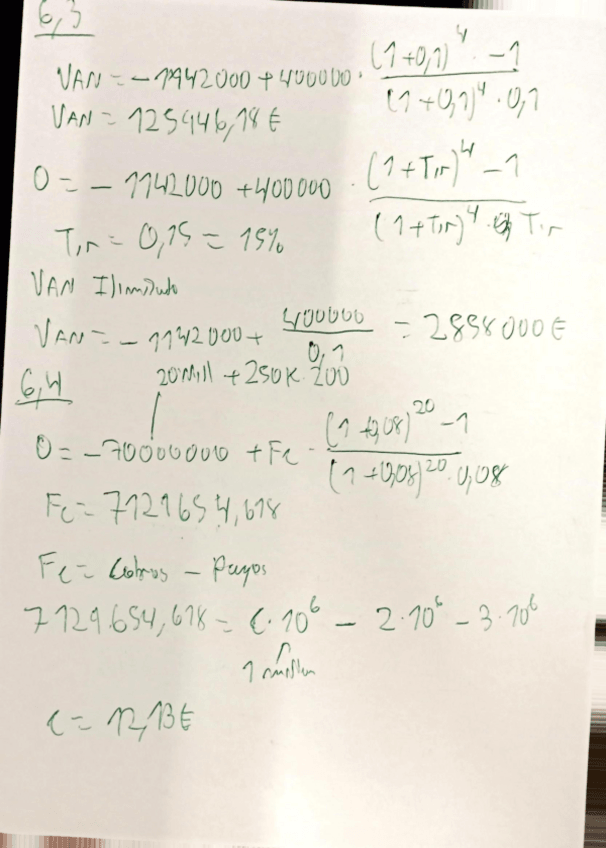 6,3
VAN = -1142000 + 400000 · ((1+0,1)^4 - 1) / ((1+0,1)^4 · 0,1)
VAN = 125946,18 €
0 = - 1142000 + 400000 · ((1+Tir)^4 - 1) / ((1+Tir)^4 · Tir)
Tir = 0,15 = 15%
VAN Ilimitado
VAN = - 1142000 + 400000 / 0,1 = 2858000 €
6,4
20 Mill + 250K · 200
0 = -70000000 + Fc · ((1+0,08)^20 - 1) / ((1+0,08)^20 · 0,08)
Fc = 7129654,618
Fc = Cobros - Pagos
7129.654,618 = C·10^6 - 2·10^6 - 3·10^6
1 millon
C = 12,13 €